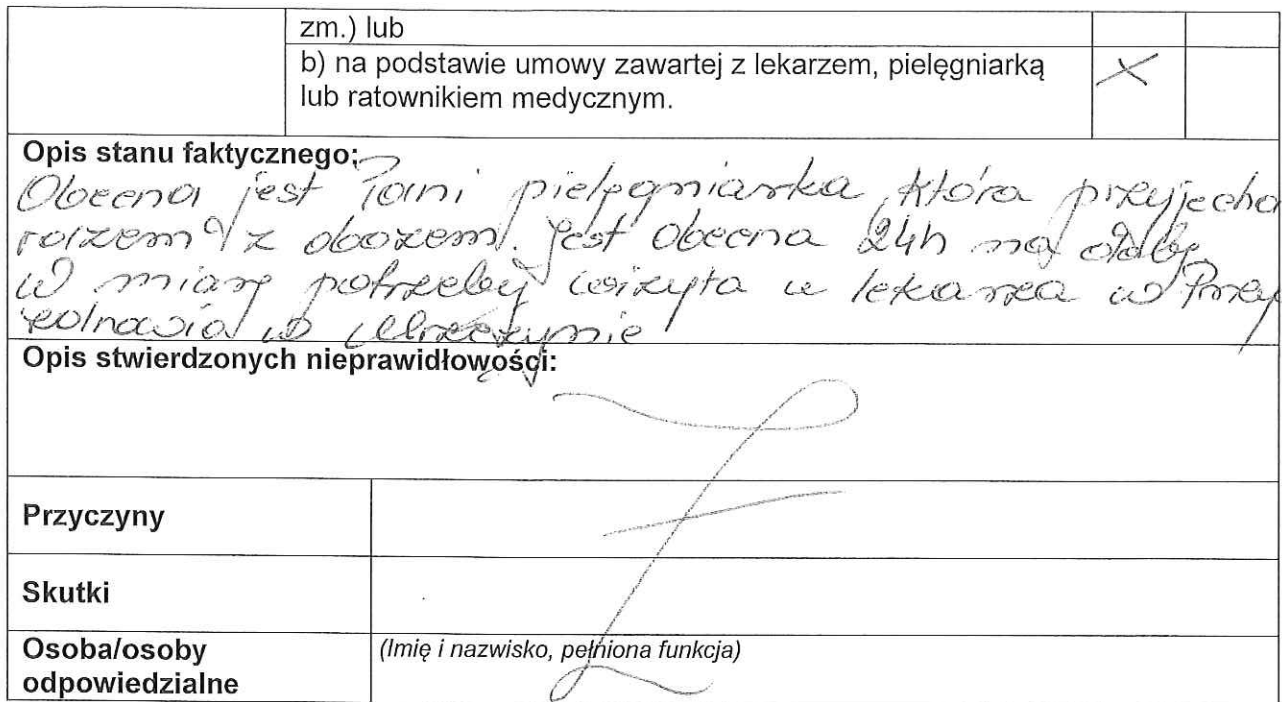 zm.) lub
b) na podstawie umowy zawartej z lekarzem, pielęgniarką
lub ratownikiem medycznym.
X
Opis stanu faktycznego:
Obecna jest Pani pielęgniarka, która przyjecha
razem z obozem. Jest obecna 24h na dobę.
W miarę potrzeby wizyta u lekarza w Przy
zdrowia w Mrzeżynie
Opis stwierdzonych nieprawidłowości:
Przyczyny
Skutki
Osoba/osoby
odpowiedzialne
(Imię i nazwisko, pełniona funkcja)